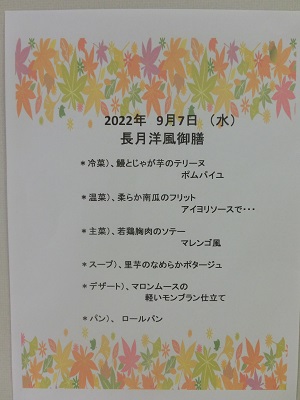 2022年 9月7日 (水)
長月洋風御膳
*冷菜)、鰻とじゃが芋のテリーヌ
ポムパイユ
*温菜)、柔らか南瓜のフリット
アイヨリソースで・・・
*主菜)、若鶏胸肉のソテー
マレンゴ風
*スープ)、里芋のなめらかポタージュ
*デザート)、マロンムースの
軽いモンブラン仕立て
*パン)、ロールパン